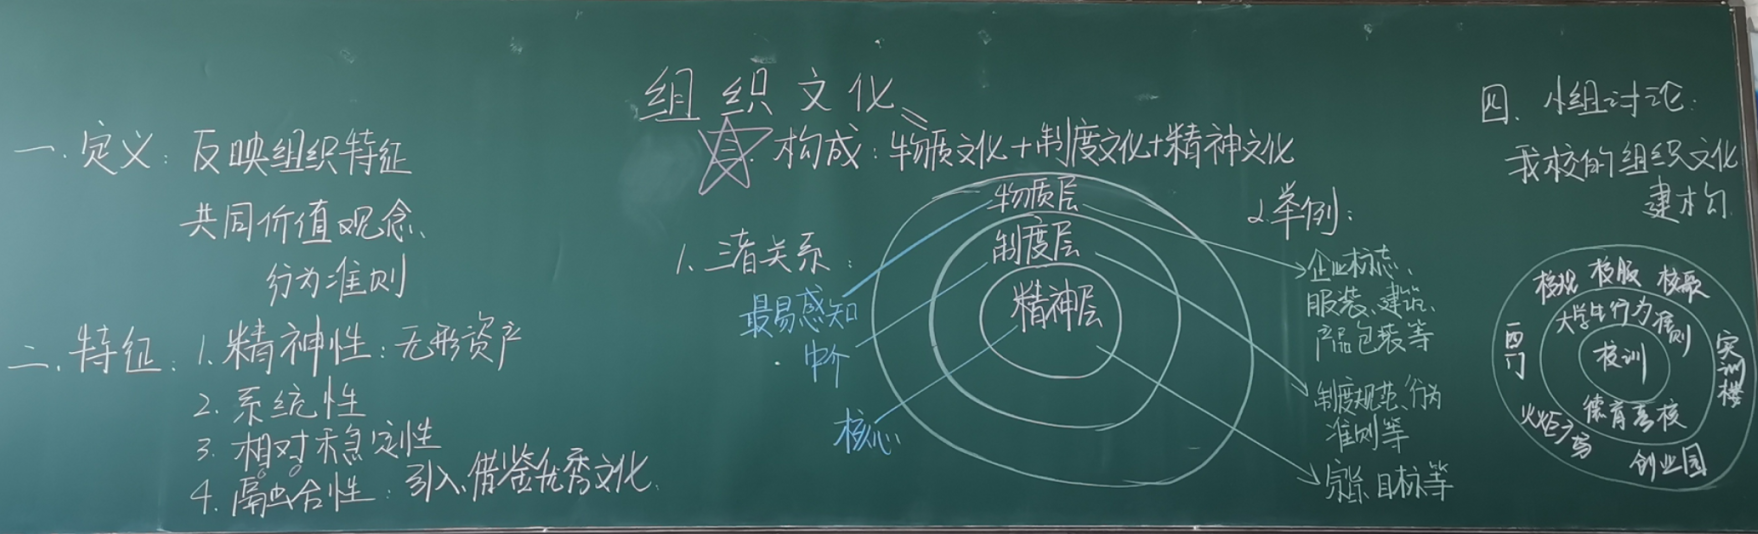 组织文化
一.定义：反映组织特征
共同价值观念
行为准则
二.特征：1.精神性：无形资产
2.系统性
3.相对稳定性
4.融合性：引入、借鉴优秀文化.
三.构成：物质文化+制度文化+精神文化
1.三者关系：
最易感知
中介
核心
物质层
制度层
精神层
2.举例：
企业标志、
服装、建筑、
产品包装等
制度规范、行为
准则等
宗旨、目标等
四.小组讨论：
我校的组织文化
建构
校规 校服 校歌
大学生行为准则
校训
德育考核
西门
实训楼
创业园